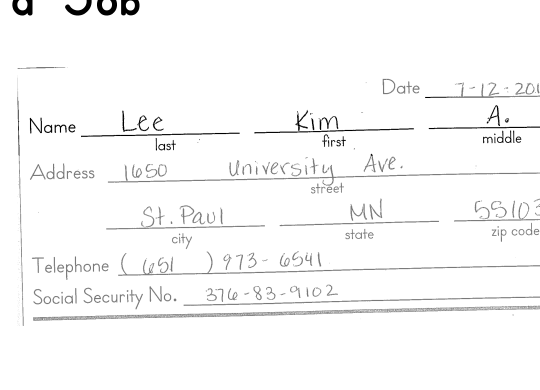 a Job
Date 7-12-201
Name Lee Kim A.
last first middle
Address 1650 University Ave.
street
St. Paul MN 55103
city state zip code
Telephone ( 651 ) 973-6541
Social Security No. 376-83-9102